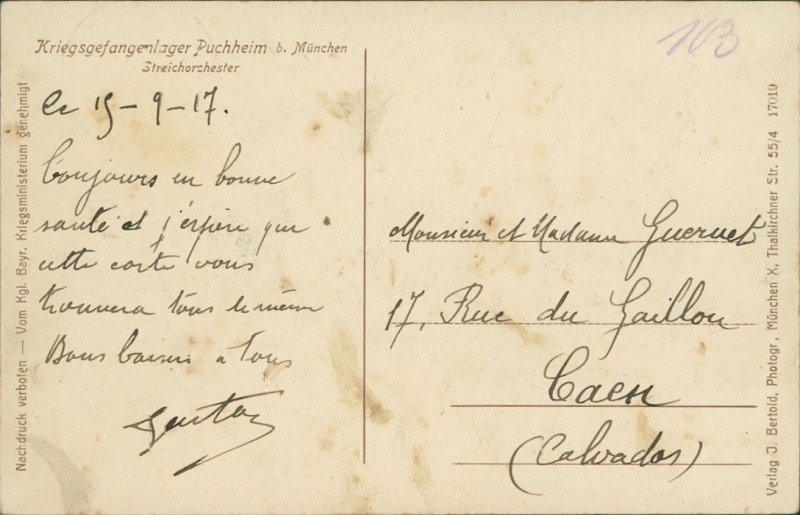 Kriegsgefangenlager Puchheim b. München
Streichorchester
Le 15-9-17.
Toujours en bonne
santé et j'éspère que
cette carte vous
trouvera tous de même
Bons baisers a tous
Gaston
103
Monsieur et Madame Guernet
17, Rue du Gaillon
Caen
(Calvados)
Nachdruck verboten — Vom Kgl. Bayr. Kriegsministerium genehmigt
Verlag J. Bertold, Photogr., München X, Thalkirchner Str. 55/4 17019